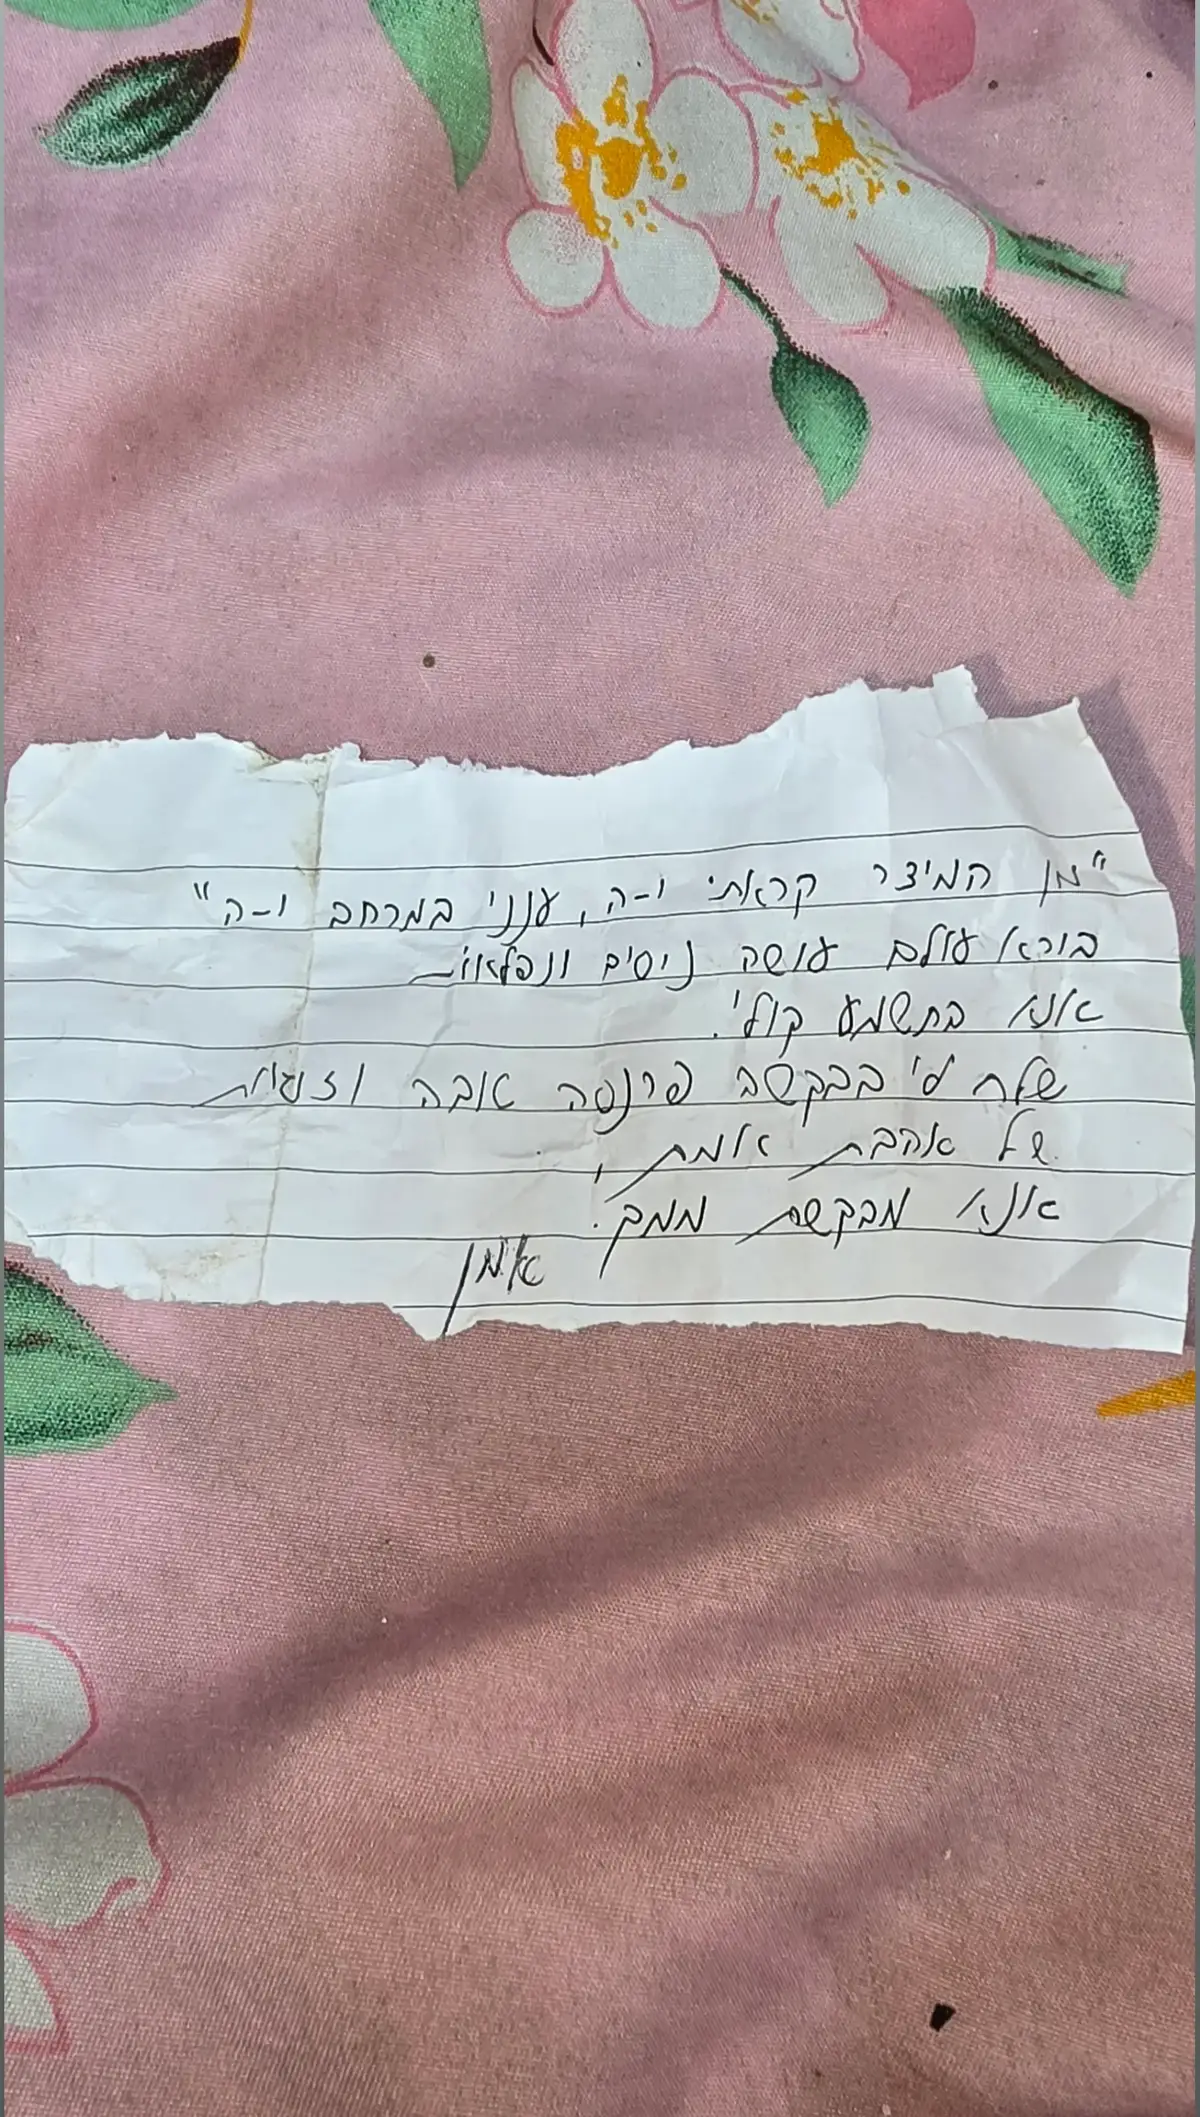 "מן המיצר קראתי י-ה, ענני במרחב י-ה"
בורא עולם עושה ניסים ונפלאות
אנא בתשמע קולי.
שלח לי בבקשה פרנסה טובה וזוגיות
של אהבת אמת,
אנא מבקשת ממך.
אמן